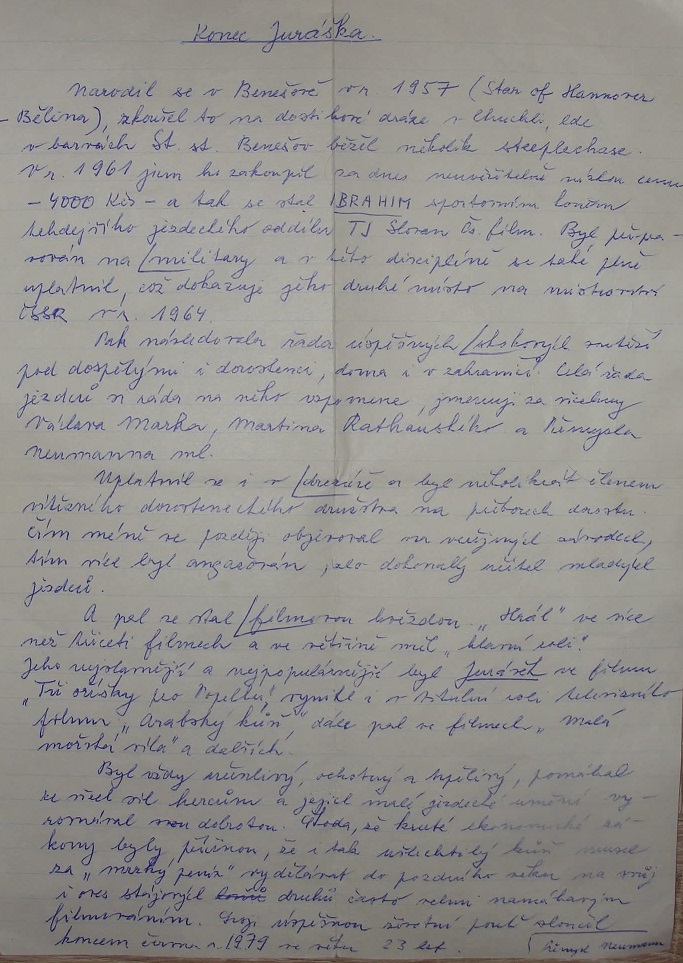 Konec Juráška.
Narodil se v Benešově v r. 1957 (Star of Hannover
- Bělina), zkoušel to na dostihové dráze v Chuchli, kde
v barvách St. st. Benešov běžel několik steeplechase.
V r. 1961 jsem ho zakoupil za dnes neuvěřitelně nízkou cenu
- 4000 Kčs - a tak se stal IBRAHIM sportovním koněm
tehdejšího jezdeckého oddílu TJ Slovan Čs. film. Byl připra-
vován na military a v této disciplíně se také plně
uplatnil, což dokazuje jeho druhé místo na mistrovství
ČSSR v r. 1964.
Pak následovala řada úspěšných skokových soutěží
pod dospělými i dorostenci, doma i v zahraničí. Celá řada
jezdců si ráda na něho vzpomene, jmenuji za všechny
Václava Marka, Martina Rathouského a Přemysla
Neumanna ml.
Uplatnil se i v drezúře a byl několikrát členem
vítězného dorosteneckého družstva na přeborech dorostu.
Čím méně se později objevoval na veřejných závodech,
tím více byl angažován, jako dokonalý učitel mladých
jezdců.
A pak se stal filmovou hvězdou. „Hrál" ve více
než třiceti filmech a ve většině měl „hlavní roli".
Jeho nejslavnější a nejpopulárnější byl Jurášek ve filmu
„Tři oříšky pro Popelku", vynikl i v titulní roli televizního
filmu „Arabský kůň", dále pak ve filmech „Malá
mořská víla" a dalších.
Byl vždy učenlivý, ochotný a trpělivý, pomáhal
ze všech sil hercům a jejich malé jezdecké umění vy-
rovnával svou dobrotou. Škoda, že kruté ekonomické zá-
kony byly příčinou, že i tak ušlechtilý kůň musel
za „mrzký peníz" vydělávat do pozdního věku na svůj
i oves stájových druhů často velmi namáhavým
filmováním. Svoji úspěšnou životní pouť skončil
koncem června r. 1979 ve věku 23 let.
Přemysl Neumann